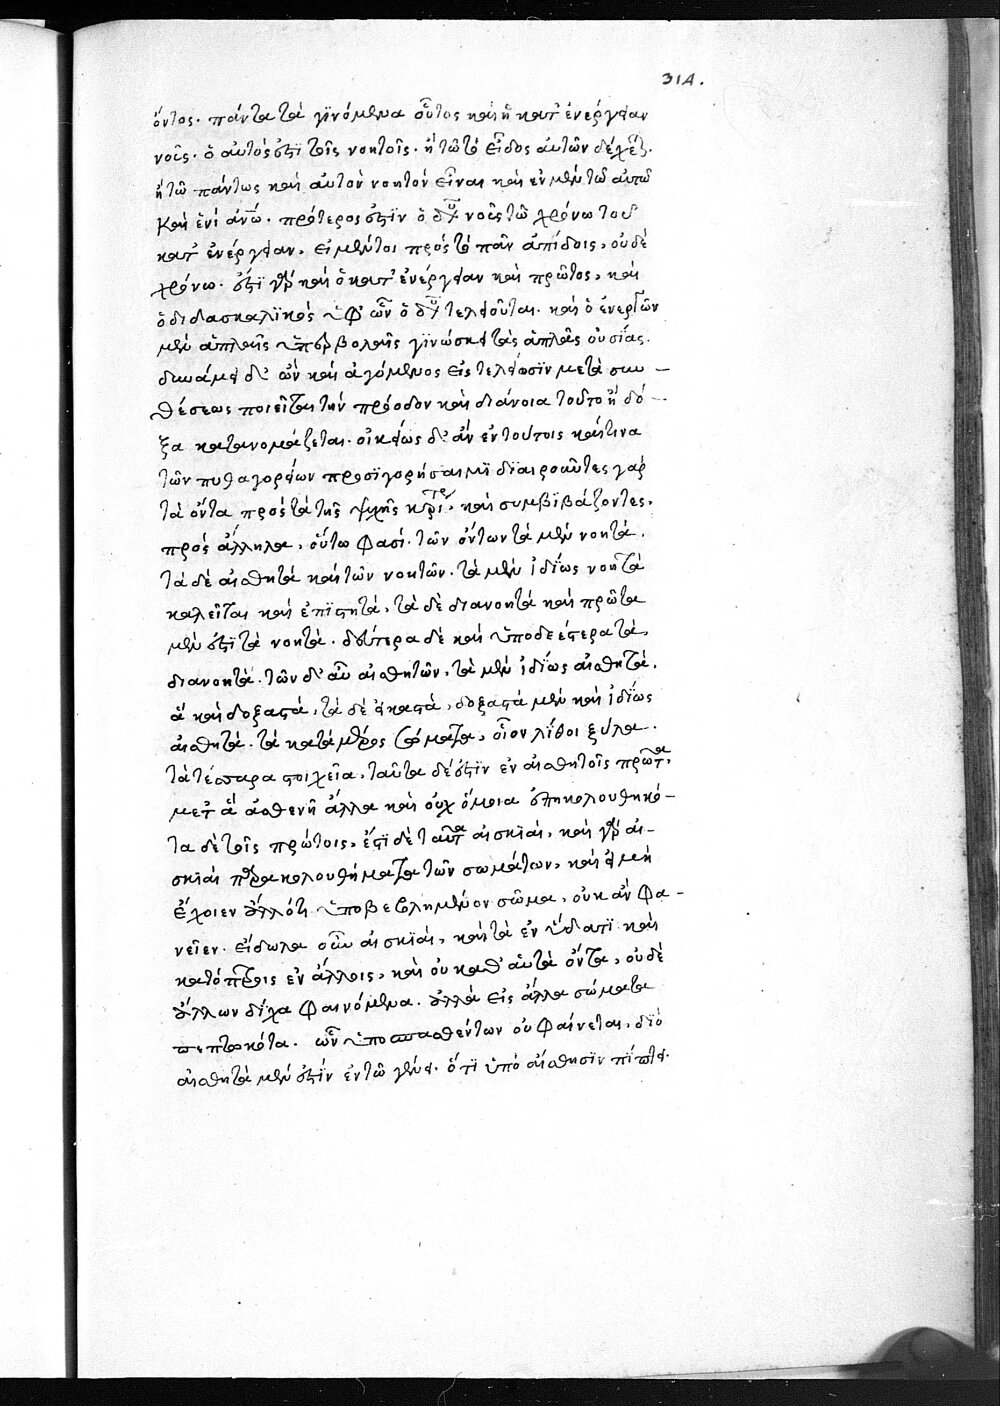 314.
όντος. πάντα τὰ γϊνόμενα οὗτος καὶ ἢ κατ' ἐνέργειαν
νοῦς. ὁ αὐτός ἐστι τοῖς νοητοῖς. ἢ τῶ τὸ εἶδος αὐτῶν δέχεσθαι.
ἢ τῶ πάντως καὶ αὐτὸν νοητὸν εἶναι καὶ ἐν μὲν τῶ αὐτῶ
καὶ ἑνὶ πρότερος ἐστϊν ὁ δυνάμει νοῦς τῶ χρόνω τοῦ
κατ' ἐνέργειαν. εἰ μέντοι πρὸς τὸ πᾶν ἀπίδοις, οὐδὲ
χρόνω. ἔστϊ γὰρ καὶ ὁ κατ' ἐνέργειαν καὶ πρῶτος, καὶ
ὁ διδασκαλϊκὸς ὑφ' ὧν ὁ δυνάμει τελειοῦται. καὶ ὁ ἐνεργῶν
μὲν ἁπλαῖς ὑπερβολαῖς γϊνώσκει τὰς ἁπλᾶς οὐσΐας.
δυνάμει δ' ὢν καὶ ἀγόμενος εἰς τελείωσϊν μετὰ συν-
θέσεως ποιεῖται τὴν πρόοδον καὶ διάνοια τοῦτο ἢ δό-
ξα κατονομάζεται. οἰκείως δ' ἂν ἐν τούτοις καί τινα
τῶν πυθαγορείων διαιροῦντες γὰρ
τὰ ὄντα πρὸς τὰ τῆς ψυχῆς κριτήρια, καὶ συμβϊβάζοντες
πρὸς ἄλληλα, οὕτω φασί. τῶν ὄντων τὰ μὲν νοητά.
τὰ δὲ αἰσθητὰ καὶ τῶν νοητῶν. τὰ μὲν ἰδΐως νοητὰ
καλεῖται καὶ ἐπϊστητά, τὰ δὲ διανοητὰ καὶ πρῶτα
μὲν ἐστϊ τὰ νοητά. δεύτερα δὲ καὶ ὑποδεέστερα τὰ
διανοητά. τῶν δ' αὖ αἰσθητῶν, τὰ μὲν ἰδΐως αἰσθητά.
ἃ καὶ δοξαστά, τὰ δὲ εἰκαστά, δοξαστὰ μὲν καὶ ἰδΐως
αἰσθητά. τὰ κατὰ μέρος σώματα, οἷον λΐθοι ξύλα.
τὰ τέσσαρα στοιχεῖα, ταῦτα δέ ἐστϊν ἐν αἰσθητοῖς πρῶτα,
μετ' ἃ ἀσθενῆ ἄλλα καὶ οὐχ ὅμοια ἐπηκολουθηκό-
τα δὲ τοῖς πρώτοις, ἔστϊ δὲ ταῦτα αἱ σκιαί, καὶ γὰρ αἱ
σκιαὶ παρακολουθήματα τῶν σωμάτων, καὶ εἰ μὴ
ἔχοιεν ἀλλότι ὑποβεβλημένον σῶμα, οὐκ ἂν φα-
νεῖεν. εἴδωλα οὖν αἱ σκιαί, καὶ τὰ ἐν ὕδατϊ καὶ
κατόπτροις ἐν ἄλλοις, καὶ οὐ καθ' αὑτὰ ὄντα, οὐδὲ
ἄλλων δίχα φαινόμενα. ἀλλὰ εἰς ἄλλα σώματα
πεπτωκότα. ὧν ὑποσπασθέντων οὐ φαίνεται, διὸ
αἰσθητὰ μὲν ἐστϊν ἐν τῶ γένει. ὅτϊ ὑπὸ αἴσθησϊν πίπτει.